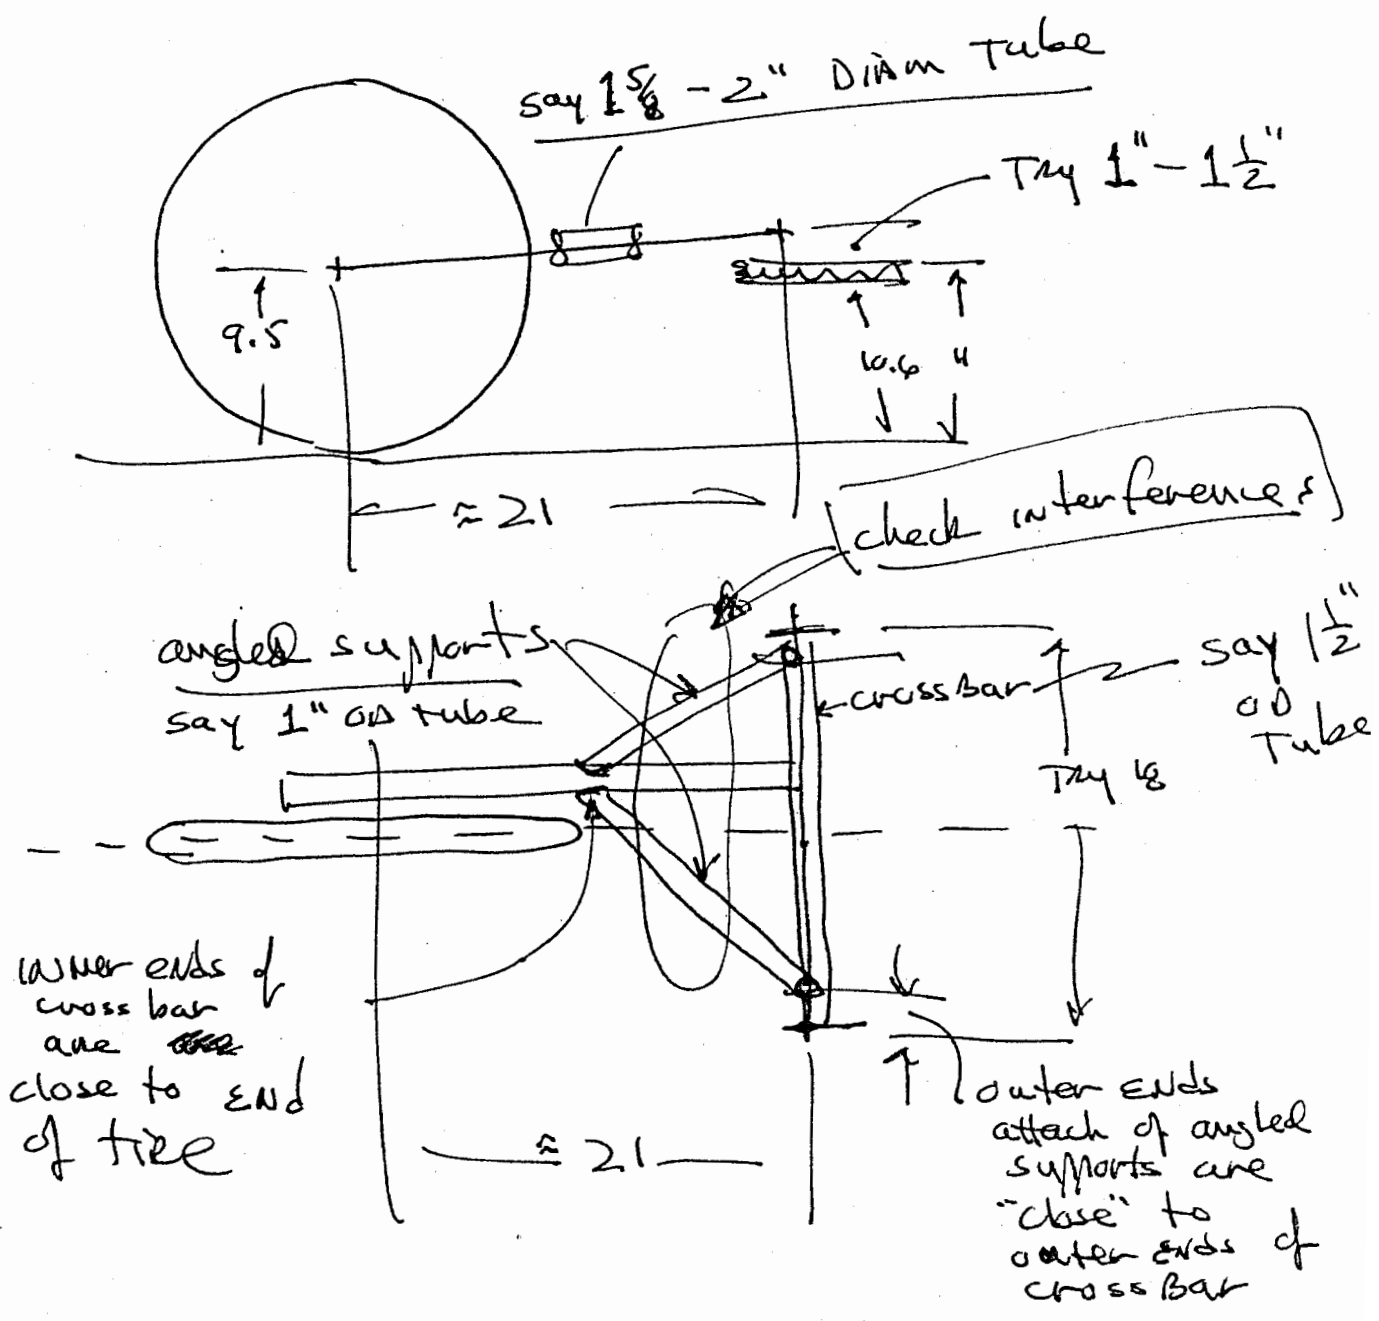 say 1 5/8 - 2" Diam Tube
Try 1" - 1 1/2"
9.5
10.6
"
≈ 21
check interferences
angled supports
say 1" OD tube
crossBar
say 1 1/2"
OD
Tube
Try 18
inner ends of
cross bar
are
close to end
of tire
≈ 21
outer ends
attach of angled
supports are
"close" to
outer ends of
crossBar